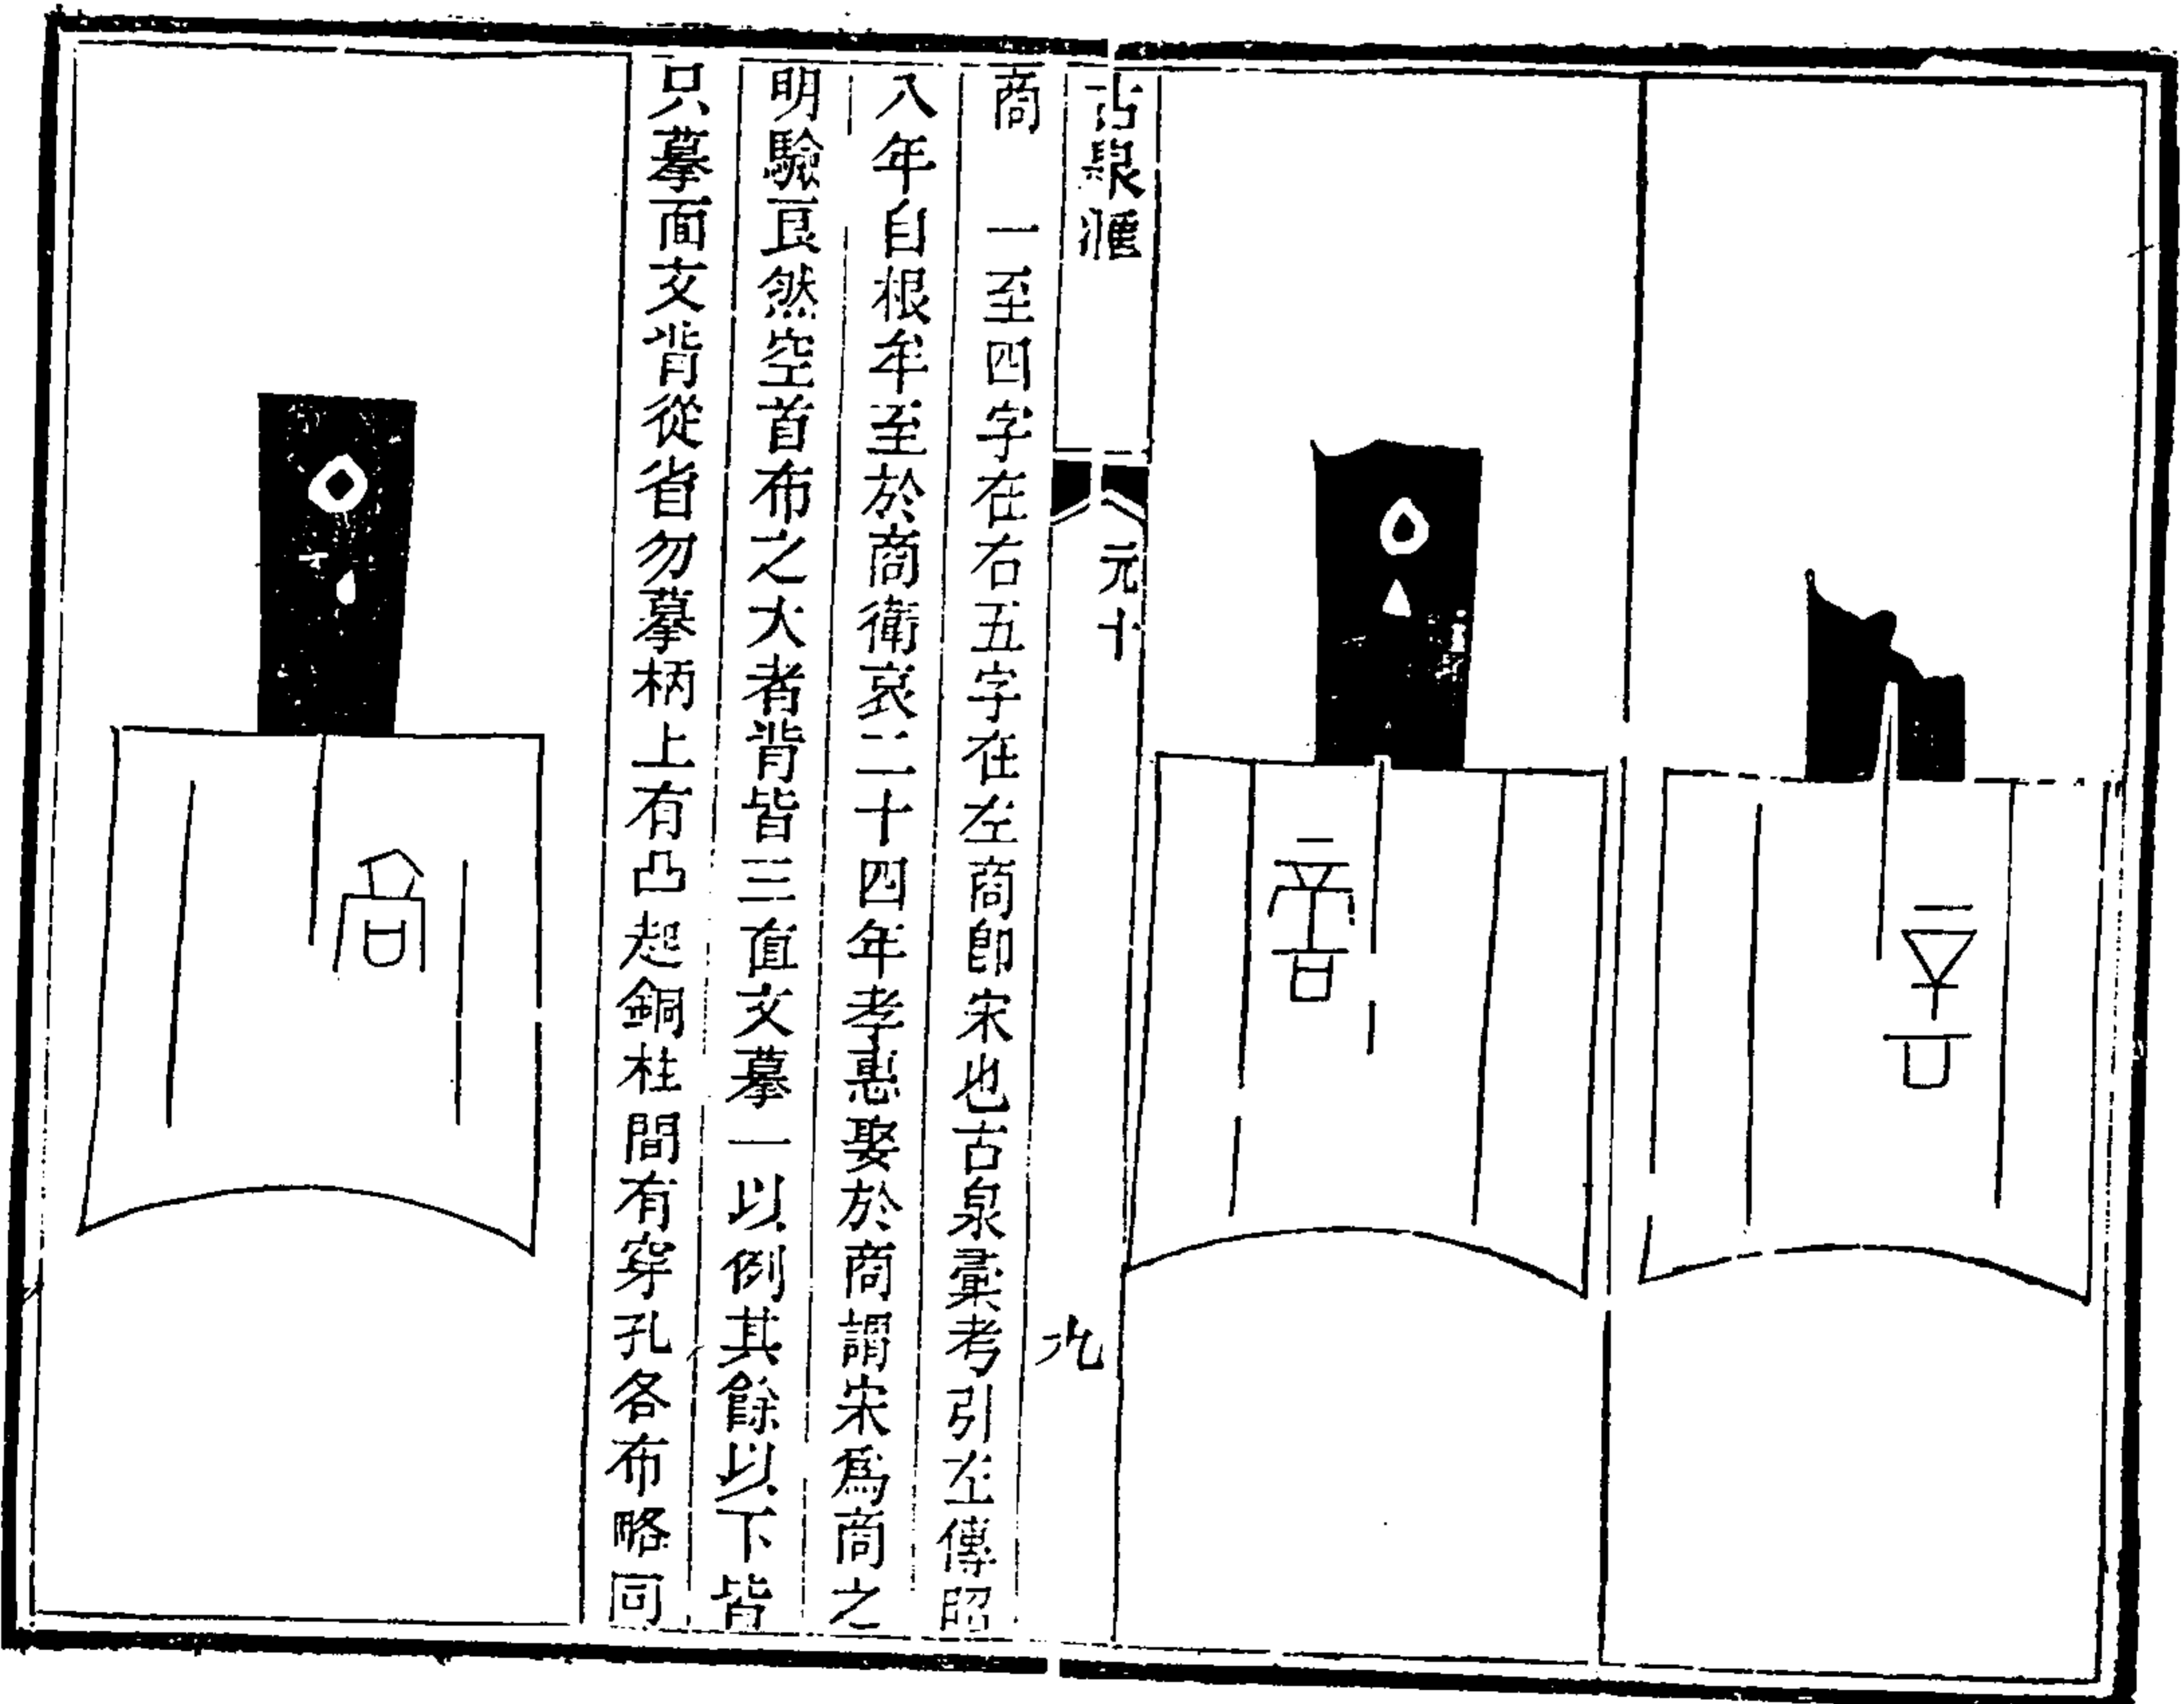 古泉滙
元十
九
商 一至四字在右五字在左商即宋也古泉彙考引左傳昭
八年自根牟至於商衛哀二十四年孝惠娶於商謂宋爲商之
明驗良然空首布之大者背皆三直文摹一以例其餘以下皆
只摹面文背從省勿摹柄上有凸起銅柱間有穿孔各布略同